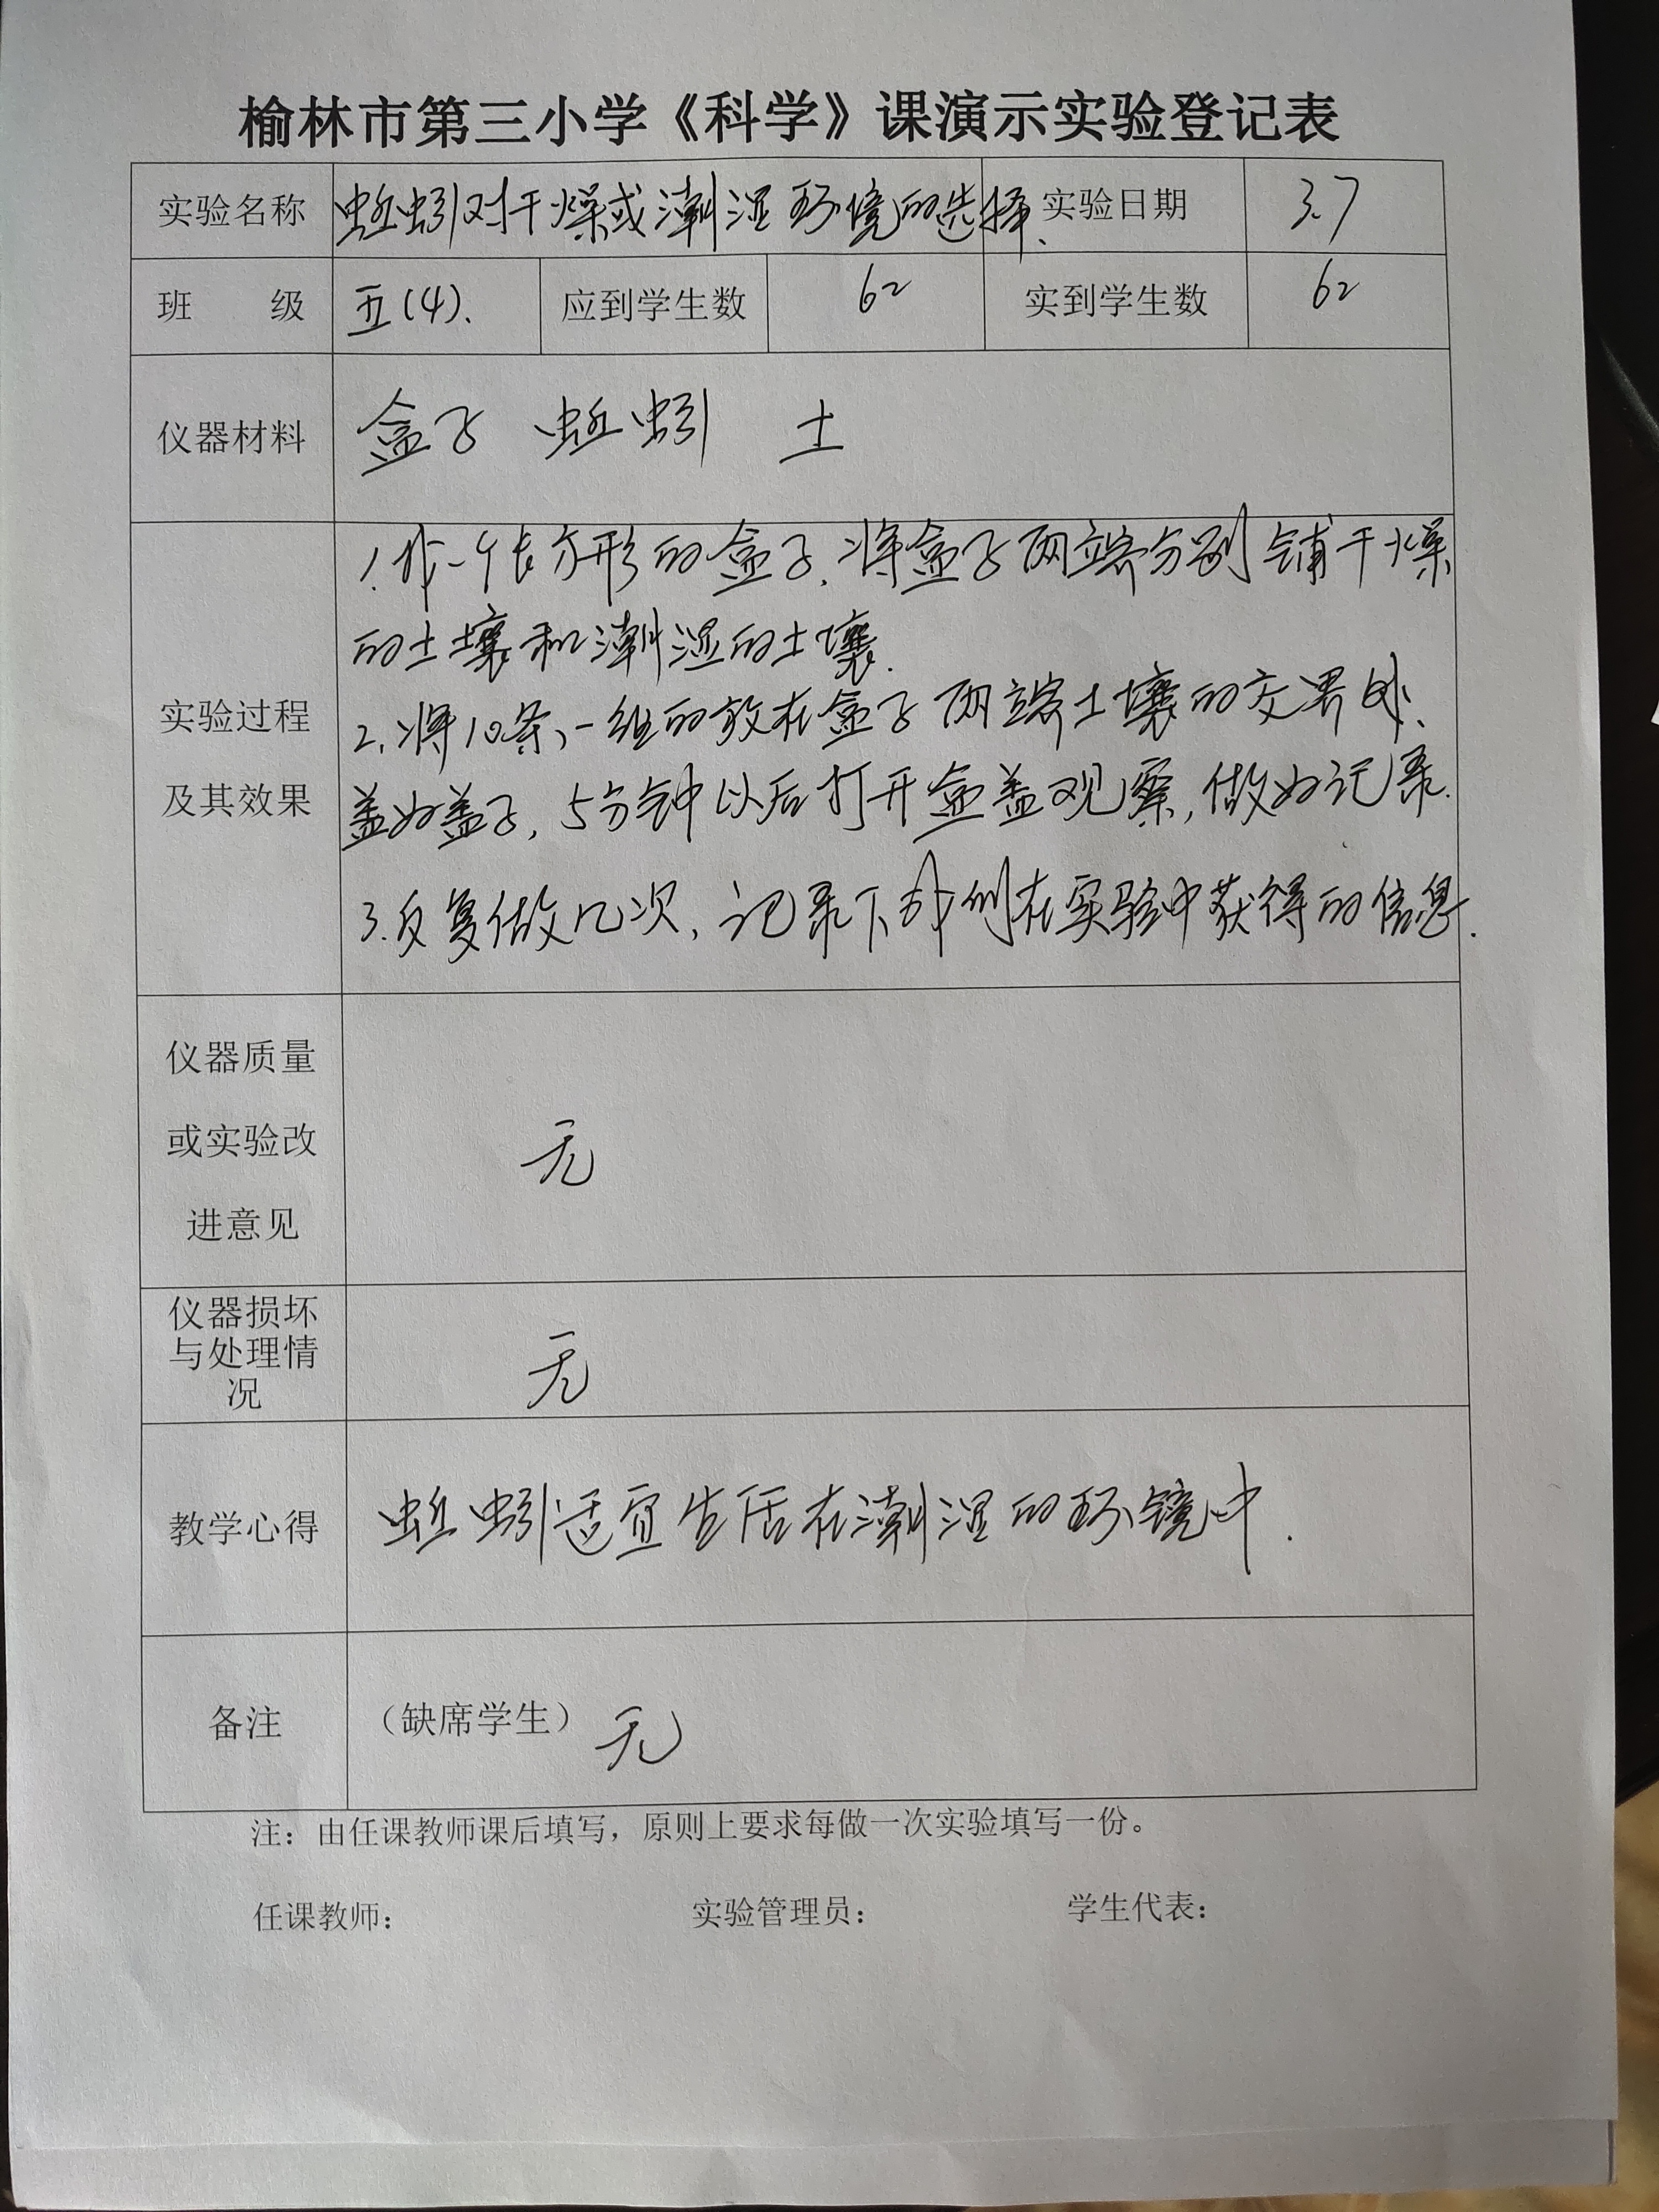 榆林市第三小学《科学》课演示实验登记表
实验名称 蚯蚓对干燥或潮湿环境的选择、 实验日期 3.7
班 级 五(4). 应到学生数 62 实到学生数 62
仪器材料 盒子 蚯蚓 土
1.作一个长方形的盒子,将盒子两端分别铺干燥
的土壤和潮湿的土壤.
实验过程 2.将10条、一组的放在盒子两端土壤的交界处、
及其效果 盖好盖子,5分钟以后打开盒盖观察,做好记录.
3.反复做几次,记录下我们在实验中获得的信息.
仪器质量
或实验改
进意见
无
仪器损坏
与处理情
况
无
教学心得 蚯蚓适宜生活在潮湿的环镜中.
备注 (缺席学生) 无
注:由任课教师课后填写,原则上要求每做一次实验填写一份。
任课教师: 实验管理员: 学生代表: